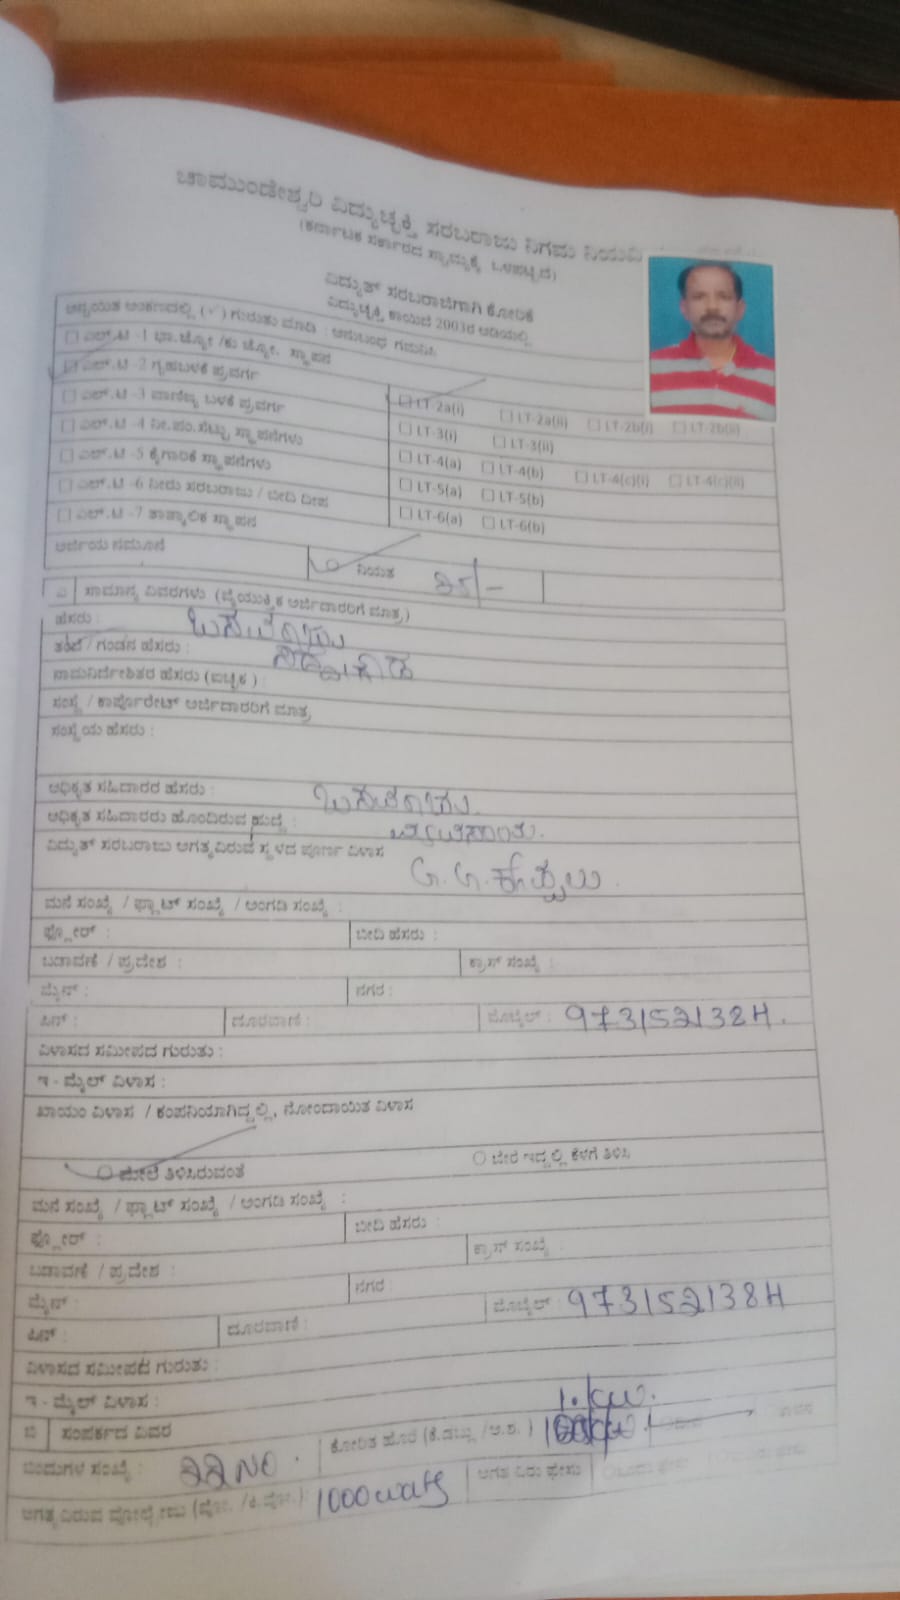 ಚಾಮುಂಡೇಶ್ವರಿ ವಿದ್ಯುಚ್ಛಕ್ತಿ ಸರಬರಾಜು ನಿಗಮ ನಿಯಮಿ
(ಕರ್ನಾಟಕ ಸರ್ಕಾರದ ಸ್ವಾಮ್ಯಕ್ಕೆ ಒಳಪಟ್ಟಿದೆ)
ವಿದ್ಯುತ್ ಸರಬರಾಜಿಗಾಗಿ ಕೋರಿಕೆ
ವಿದ್ಯುಚ್ಛಕ್ತಿ ಕಾಯಿದೆ 2003ರ ಅಡಿಯಲ್ಲಿ
ಅನ್ವಯಿತ ಅಂಕಣದಲ್ಲಿ (✓) ಗುರುತು ಮಾಡಿ : ಅನುಬಂಧ ಗಮನಿಸಿ
ಎಲ್.ಟಿ -1 ಭಾ.ಜ್ಯೋ /ಕು ಜ್ಯೋ. ಸ್ಥಾಪನ
ಎಲ್.ಟಿ -2 ಗೃಹಬಳಕೆ ಪ್ರವರ್ಗ LT-2a(i) LT-2a(ii) LT-2b(i) LT-2b(ii)
ಎಲ್.ಟಿ -3 ವಾಣಿಜ್ಯ ಬಳಕೆ ಪ್ರವರ್ಗ LT-3(i) LT-3(ii)
ಎಲ್.ಟಿ -4 ನೀ.ಪಂ.ಸೆಟ್ಟು ಸ್ಥಾಪನೆಗಳು LT-4(a) LT-4(b) LT-4(c)(i) LT-4(c)(ii)
ಎಲ್.ಟಿ -5 ಕೈಗಾರಿಕೆ ಸ್ಥಾಪನೆಗಳು LT-5(a) LT-5(b)
ಎಲ್.ಟಿ -6 ನೀರು ಸರಬರಾಜು / ಬೀದಿ ದೀಪ LT-6(a) LT-6(b)
ಎಲ್.ಟಿ -7 ತಾತ್ಕಾಲಿಕ ಸ್ಥಾಪನ
ಅರ್ಜಿಯ ನಮೂನೆ ನಿಯತ
ಎ ಸಾಮಾನ್ಯ ವಿವರಗಳು (ವೈಯುಕ್ತಿಕ ಅರ್ಜಿದಾರರಿಗೆ ಮಾತ್ರ)
ಹೆಸರು : ಬಸವರಾಜು
ತಂದೆ / ಗಂಡನ ಹೆಸರು :
ನಾಮನಿರ್ದೇಶಿತರ ಹೆಸರು (ಐಚ್ಛಿಕ ) :
ಸಂಸ್ಥೆ / ಕಾರ್ಪೊರೇಟ್ ಅರ್ಜಿದಾರರಿಗೆ ಮಾತ್ರ
ಸಂಸ್ಥೆಯ ಹೆಸರು :
ಅಧಿಕೃತ ಸಹಿದಾರರ ಹೆಸರು : ಬಸವರಾಜು
ಅಧಿಕೃತ ಸಹಿದಾರರು ಹೊಂದಿರುವ ಹುದ್ದೆ :
ವಿದ್ಯುತ್ ಸರಬರಾಜು ಅಗತ್ಯವಿರುವ ಸ್ಥಳದ ಪೂರ್ಣ ವಿಳಾಸ
ಮನೆ ಸಂಖ್ಯೆ / ಫ್ಲಾಟ್ ಸಂಖ್ಯೆ / ಅಂಗಡಿ ಸಂಖ್ಯೆ :
ಫ್ಲೋರ್ : ಬೀದಿ ಹೆಸರು :
ಬಡಾವಣೆ / ಪ್ರದೇಶ : ಕ್ರಾಸ್ ಸಂಖ್ಯೆ :
ಮೈನ್ : ನಗರ :
ಪಿನ್ : ದೂರವಾಣಿ : ಮೊಬೈಲ್ : 9731521384.
ವಿಳಾಸದ ಸಮೀಪದ ಗುರುತು :
ಇ - ಮೈಲ್ ವಿಳಾಸ :
ಖಾಯಂ ವಿಳಾಸ / ಕಂಪನಿಯಾಗಿದ್ದಲ್ಲಿ, ನೋಂದಾಯಿತ ವಿಳಾಸ
ಮೇಲೆ ತಿಳಿಸಿರುವಂತೆ ಬೇರೆ ಇದ್ದಲ್ಲಿ ಕೆಳಗೆ ತಿಳಿಸಿ
ಮನೆ ಸಂಖ್ಯೆ / ಫ್ಲಾಟ್ ಸಂಖ್ಯೆ / ಅಂಗಡಿ ಸಂಖ್ಯೆ :
ಫ್ಲೋರ್ : ಬೀದಿ ಹೆಸರು :
ಬಡಾವಣೆ / ಪ್ರದೇಶ : ಕ್ರಾಸ್ ಸಂಖ್ಯೆ :
ಮೈನ್ : ನಗರ :
ಪಿನ್ : ದೂರವಾಣಿ : ಮೊಬೈಲ್ : 9731521384
ವಿಳಾಸದ ಸಮೀಪದ ಗುರುತು :
ಇ - ಮೈಲ್ ವಿಳಾಸ :
ಬಿ ಸಂಪರ್ಕದ ವಿವರ ಕೋರಿತ ಹೊರೆ (ಕಿ.ಡಬ್ಲು /ಅ.ಶ. ) 1.kw.
ಬಿಂದುಗಳ ಸಂಖ್ಯೆ : ಅಗತ್ಯವಿರು ಫೇಸು
ಅಗತ್ಯವಿರುವ ವೋಲ್ಟೇಜು (ವೋ. /ಕಿ.ವೋ.) : 1000 watts